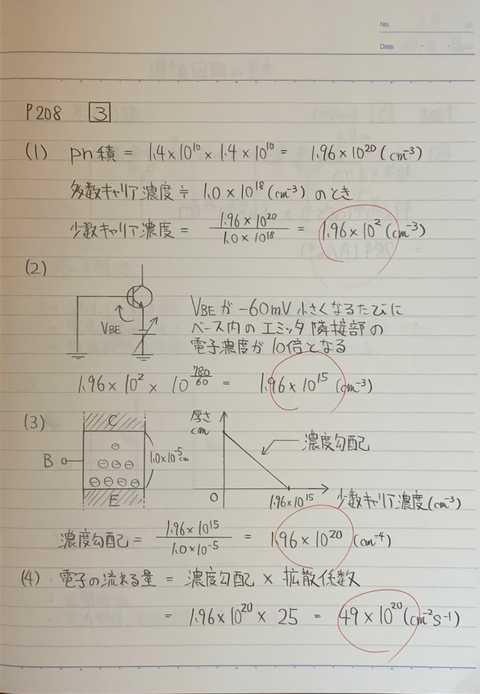 No.
Date
P208 [3]
(1) pn積 = 1.4×10¹⁰ × 1.4×10¹⁰ = 1.96×10²⁰ (cm⁻³)
多数キャリア濃度 ≒ 1.0×10¹⁸ (cm⁻³) のとき
少数キャリア濃度 = 1.96×10²⁰ / 1.0×10¹⁸ = 1.96×10² (cm⁻³)
(2)
VBE
VBEが -60mV 小さくなるたびに
ベース内のエミッタ隣接部の
電子濃度が10倍となる
1.96×10² × 10^(780/60) = 1.96×10¹⁵ (cm⁻³)
(3)
C
B
E
1.0×10⁻⁵cm
厚さ
cm
濃度勾配
0
1.96×10¹⁵
少数キャリア濃度(cm⁻³)
濃度勾配 = 1.96×10¹⁵ / 1.0×10⁻⁵ = 1.96×10²⁰ (cm⁻⁴)
(4) 電子の流れる量 = 濃度勾配 × 拡散係数
= 1.96×10²⁰ × 25 = 49×10²⁰ (cm⁻²s⁻¹)